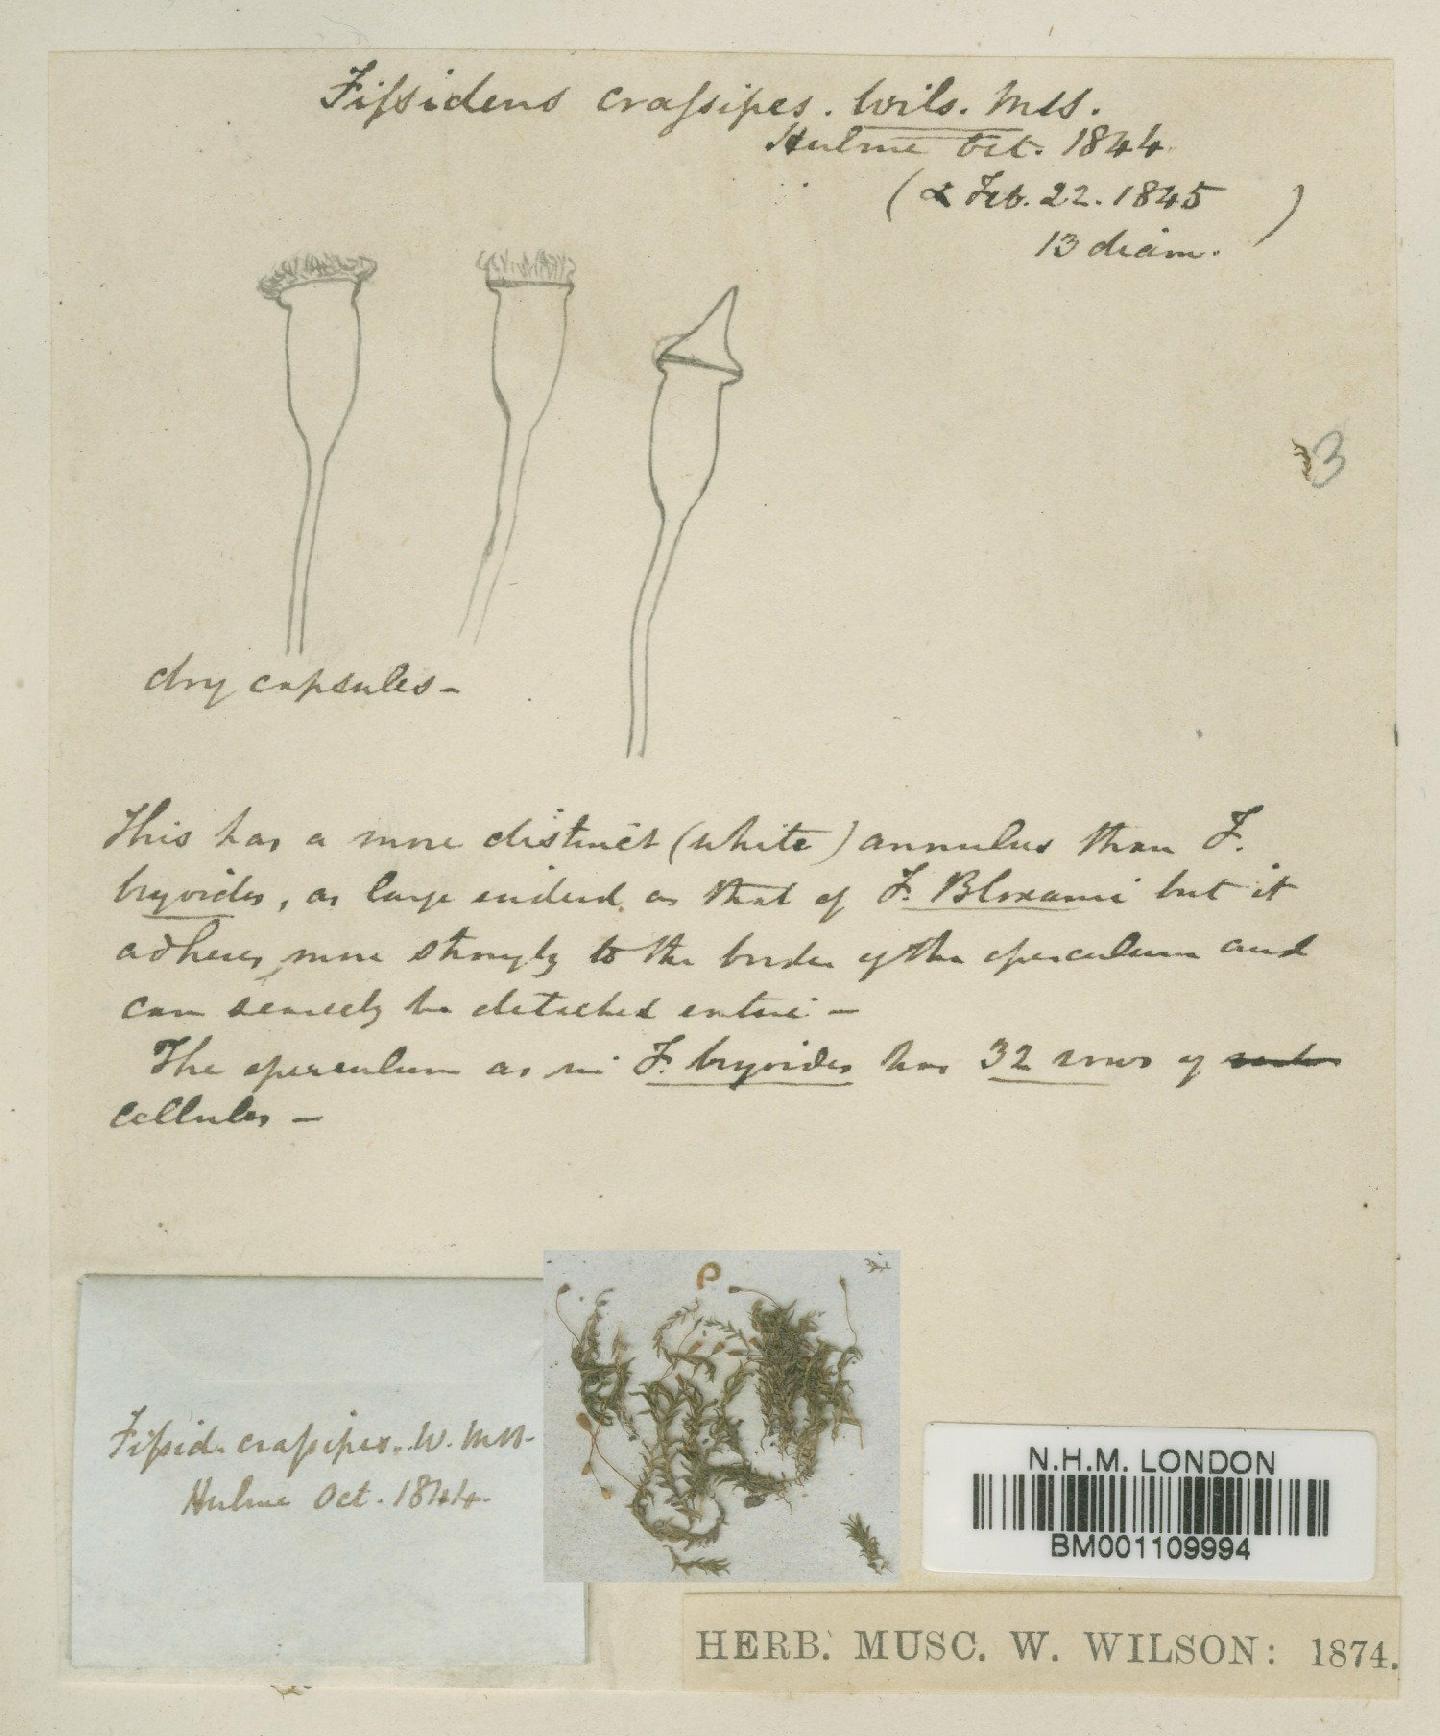 Fissidens crassipes. Wils. Mss.
Hulme Oct. 1844
(& Feb. 22. 1845 )
13 diam.
3
dry capsules -
This has a more distinct (white) annulus than F.
bryoides, as large indeed as that of F. Bloxami but it
adheres more strongly to the border of the operculum and
can scarcely be detached entire -
The operculum as in F. bryoides has 32 rows of
cellules -
Fissid. crassipes. W. Mss.
Hulme Oct. 1844.
N.H.M. LONDON
BM001109994
HERB. MUSC. W. WILSON: 1874.